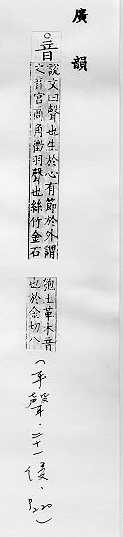 廣韻
音
說文曰聲也生於心有節於外謂
之音宮商角徵羽聲也絲竹金石
匏土革木音
也於金切八
(平聲.二十一侵.P220)